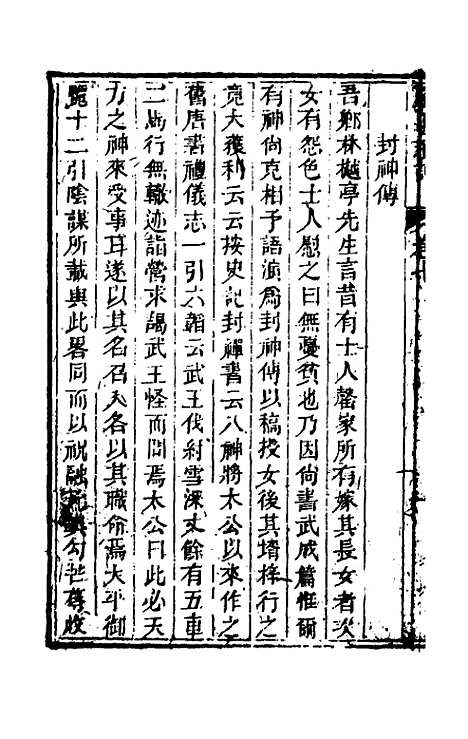 封神傳
吾鄉林樾亭先生言昔有士人罄家所有嫁其長女者次
女有怨色士人慰之曰無憂貧也乃因尚書武成篇惟爾
有神尚克相予語演爲封神傳以稿授女後其壻梓行之
竟大獲利云云按史記封禪書云八神將太公以來作之
舊唐書禮儀志一引六韜云武王伐紂雪深丈餘有五車
二馬行無轍迹詣營求謁武王怪而問焉太公曰此必天
方之神來受事耳遂以其名召入各以其職命焉太平御
覽十二引陰謀所載與此畧同而以祝融 勾芒蓐收